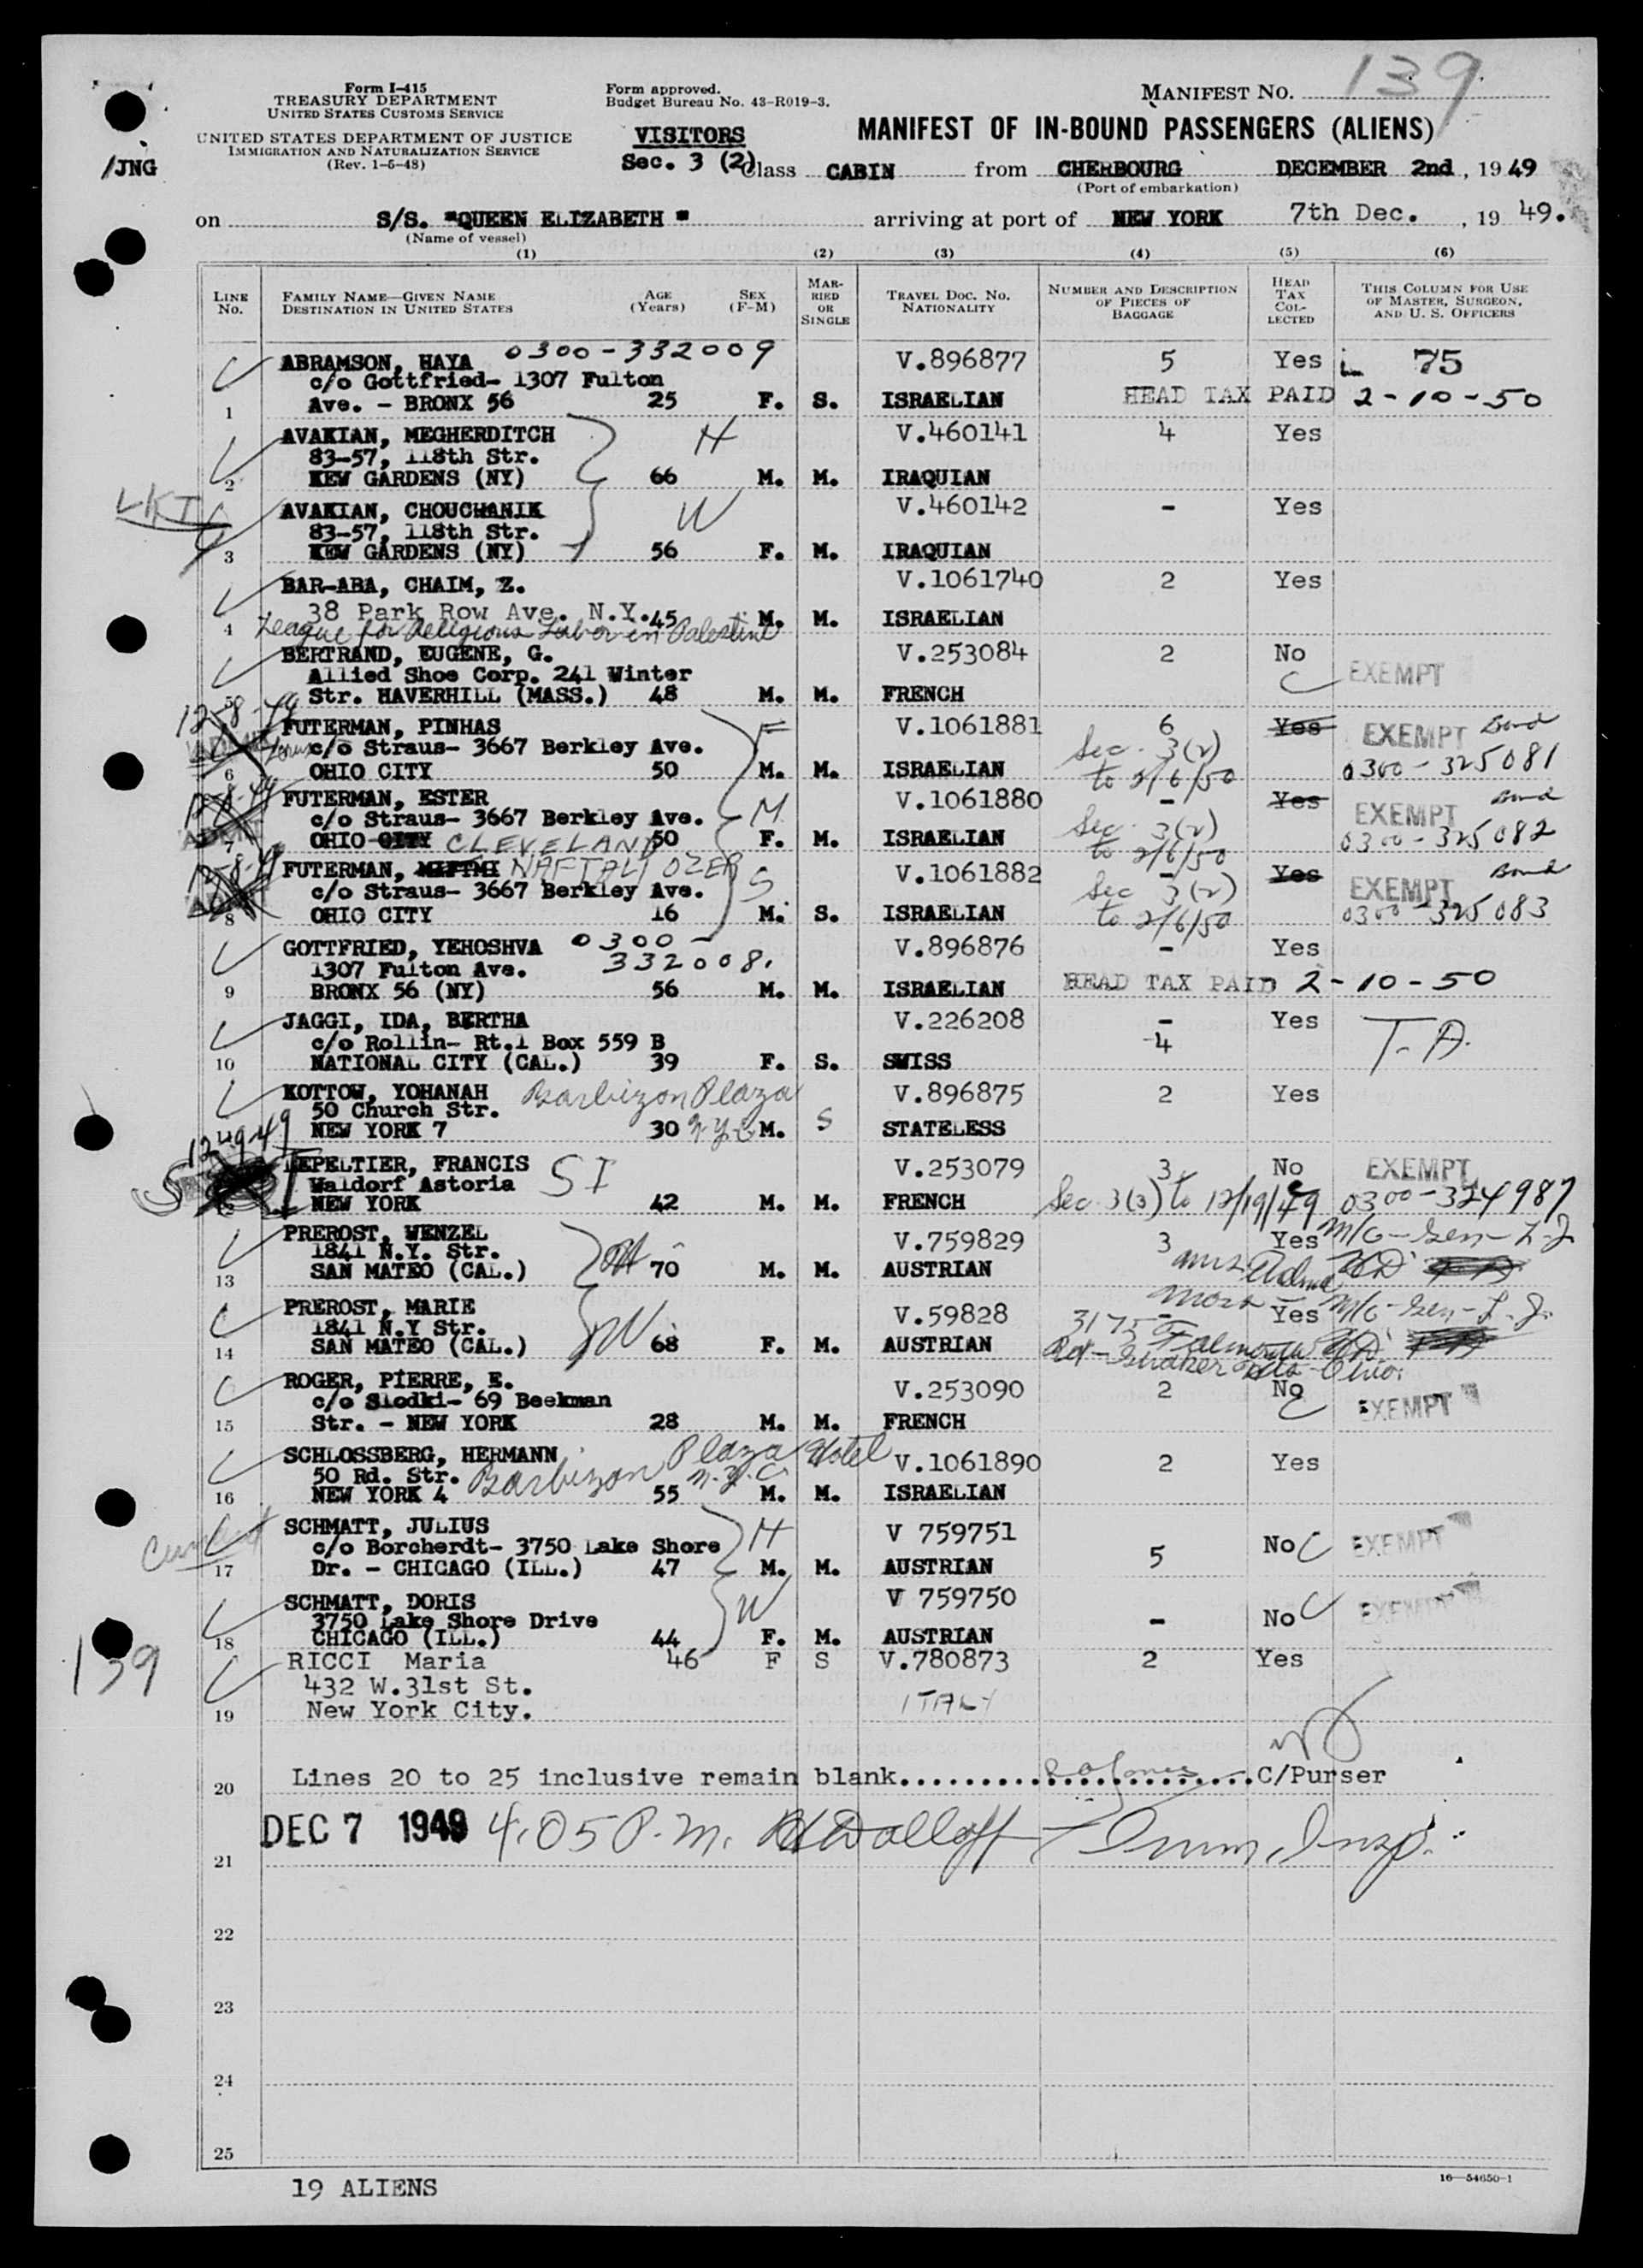 139
Form I-415
TREASURY DEPARTMENT
UNITED STATES CUSTOMS SERVICE
UNITED STATES DEPARTMENT OF JUSTICE
IMMIGRATION AND NATURALIZATION SERVICE
(Rev. 1-5-48)
/JNG
Form approved.
Budget Bureau No. 43-R019-3.
VISITORS
Sec. 3 (2)
MANIFEST NO.
MANIFEST OF IN-BOUND PASSENGERS (ALIENS)
Class CABIN from CHERBOURG DECEMBER 2nd, 1949
(Port of embarkation)
on S/S. "QUEEN ELIZABETH" arriving at port of NEW YORK 7th Dec., 1949.
(Name of vessel)
(1) (2) (3) (4) (5) (6)
LINE NO. FAMILY NAME—GIVEN NAME DESTINATION IN UNITED STATES AGE (Years) SEX (F-M) MARRIED OR SINGLE TRAVEL DOC. NO. NATIONALITY NUMBER AND DESCRIPTION OF PIECES OF BAGGAGE HEAD TAX COLLECTED THIS COLUMN FOR USE OF MASTER, SURGEON, AND U. S. OFFICERS
ABRAMSON, HAYA 0300-332009 V.896877 5 Yes 75
c/o Gottfried- 1307 Fulton
1 Ave. - BRONX 56 25 F. S. ISRAELIAN HEAD TAX PAID 2-10-50
AVAKIAN, MEGHERDITCH H V.460141 4 Yes
83-57, 118th Str.
2 KEW GARDENS (NY) 66 M. M. IRAQUIAN
LKT
AVAKIAN, CHOUCHANIK W V.460142 - Yes
83-57, 118th Str.
3 KEW GARDENS (NY) 56 F. M. IRAQUIAN
BAR-ABA, CHAIM, Z. V.1061740 2 Yes
38 Park Row Ave. N.Y. 45 M. M. ISRAELIAN
4 League for Religious Labor in Palestine
BERTRAND, EUGENE, G. V.253084 2 No
Allied Shoe Corp. 241 Winter C EXEMPT
5 Str. HAVERHILL (MASS.) 48 M. M. FRENCH
12-8-49
FUTERMAN, PINHAS F V.1061881 6 Yes EXEMPT Bond
c/o Straus- 3667 Berkley Ave. Sec. 3(2)
6 OHIO CITY 50 M. M. ISRAELIAN to 2/6/50 0300-325081
12-8-49
FUTERMAN, ESTER M V.1061880 - Yes EXEMPT Bond
c/o Straus- 3667 Berkley Ave. Sec. 3(2)
7 OHIO CITY CLEVELAND 50 F. M. ISRAELIAN to 2/6/50 0300-325082
12-8-49
FUTERMAN, NAFTALI OZER S V.1061882 - Yes EXEMPT Bond
c/o Straus- 3667 Berkley Ave. Sec 3(2)
8 OHIO CITY 16 M. S. ISRAELIAN to 2/6/50 0300-325083
GOTTFRIED, YEHOSHVA 0300- V.896876 - Yes
1307 Fulton Ave. 332008.
9 BRONX 56 (NY) 56 M. M. ISRAELIAN HEAD TAX PAID 2-10-50
JAGGI, IDA, BERTHA V.226208 - Yes T.A.
c/o Rollin- Rt.1 Box 559 B 4
10 NATIONAL CITY (CAL.) 39 F. S. SWISS
KOTTOW, YOHANAH Barbizon Plaza V.896875 2 Yes
50 Church Str.
NEW YORK 7 30 N.Y.C M. S STATELESS
12-9-49
LEPELTIER, FRANCIS SI V.253079 3 No EXEMPT
Waldorf Astoria
NEW YORK 42 M. M. FRENCH Sec 3(3) to 12/19/49 0300-324987
PREROST, WENZEL H V.759829 3 Yes M/C-Gen-L.J.
1841 N.Y. Str.
13 SAN MATEO (CAL.) 70 M. M. AUSTRIAN
PREROST, MARIE W V.59828 - Yes M/C-Gen-L.J.
1841 N.Y Str. 3175
14 SAN MATEO (CAL.) 68 F. M. AUSTRIAN Falmouth Rd- Shaker Hts-Ohio.
ROGER, PIERRE, E. V.253090 2 No
c/o Slodki- 69 Beekman C EXEMPT
15 Str. - NEW YORK 28 M. M. FRENCH
SCHLOSSBERG, HERMANN V.1061890 2 Yes
50 Rd. Str. Barbizon Plaza Hotel N.Y.C.
16 NEW YORK 4 55 M. M. ISRAELIAN
SCHMATT, JULIUS H V 759751 No C EXEMPT
c/o Borcherdt- 3750 Lake Shore 5
17 Dr. - CHICAGO (ILL.) 47 M. M. AUSTRIAN
SCHMATT, DORIS W V 759750 - No C EXEMPT
3750 Lake Shore Drive
18 CHICAGO (ILL.) 44 F. M. AUSTRIAN
139
RICCI Maria 46 F S V.780873 2 Yes
432 W.31st St.
19 New York City. ITALY
20 Lines 20 to 25 inclusive remain blank.........................C/Purser
DEC 7 1949 4.05 P.m. Imm. Insp.
21
22
23
24
25
19 ALIENS
16—54650-1